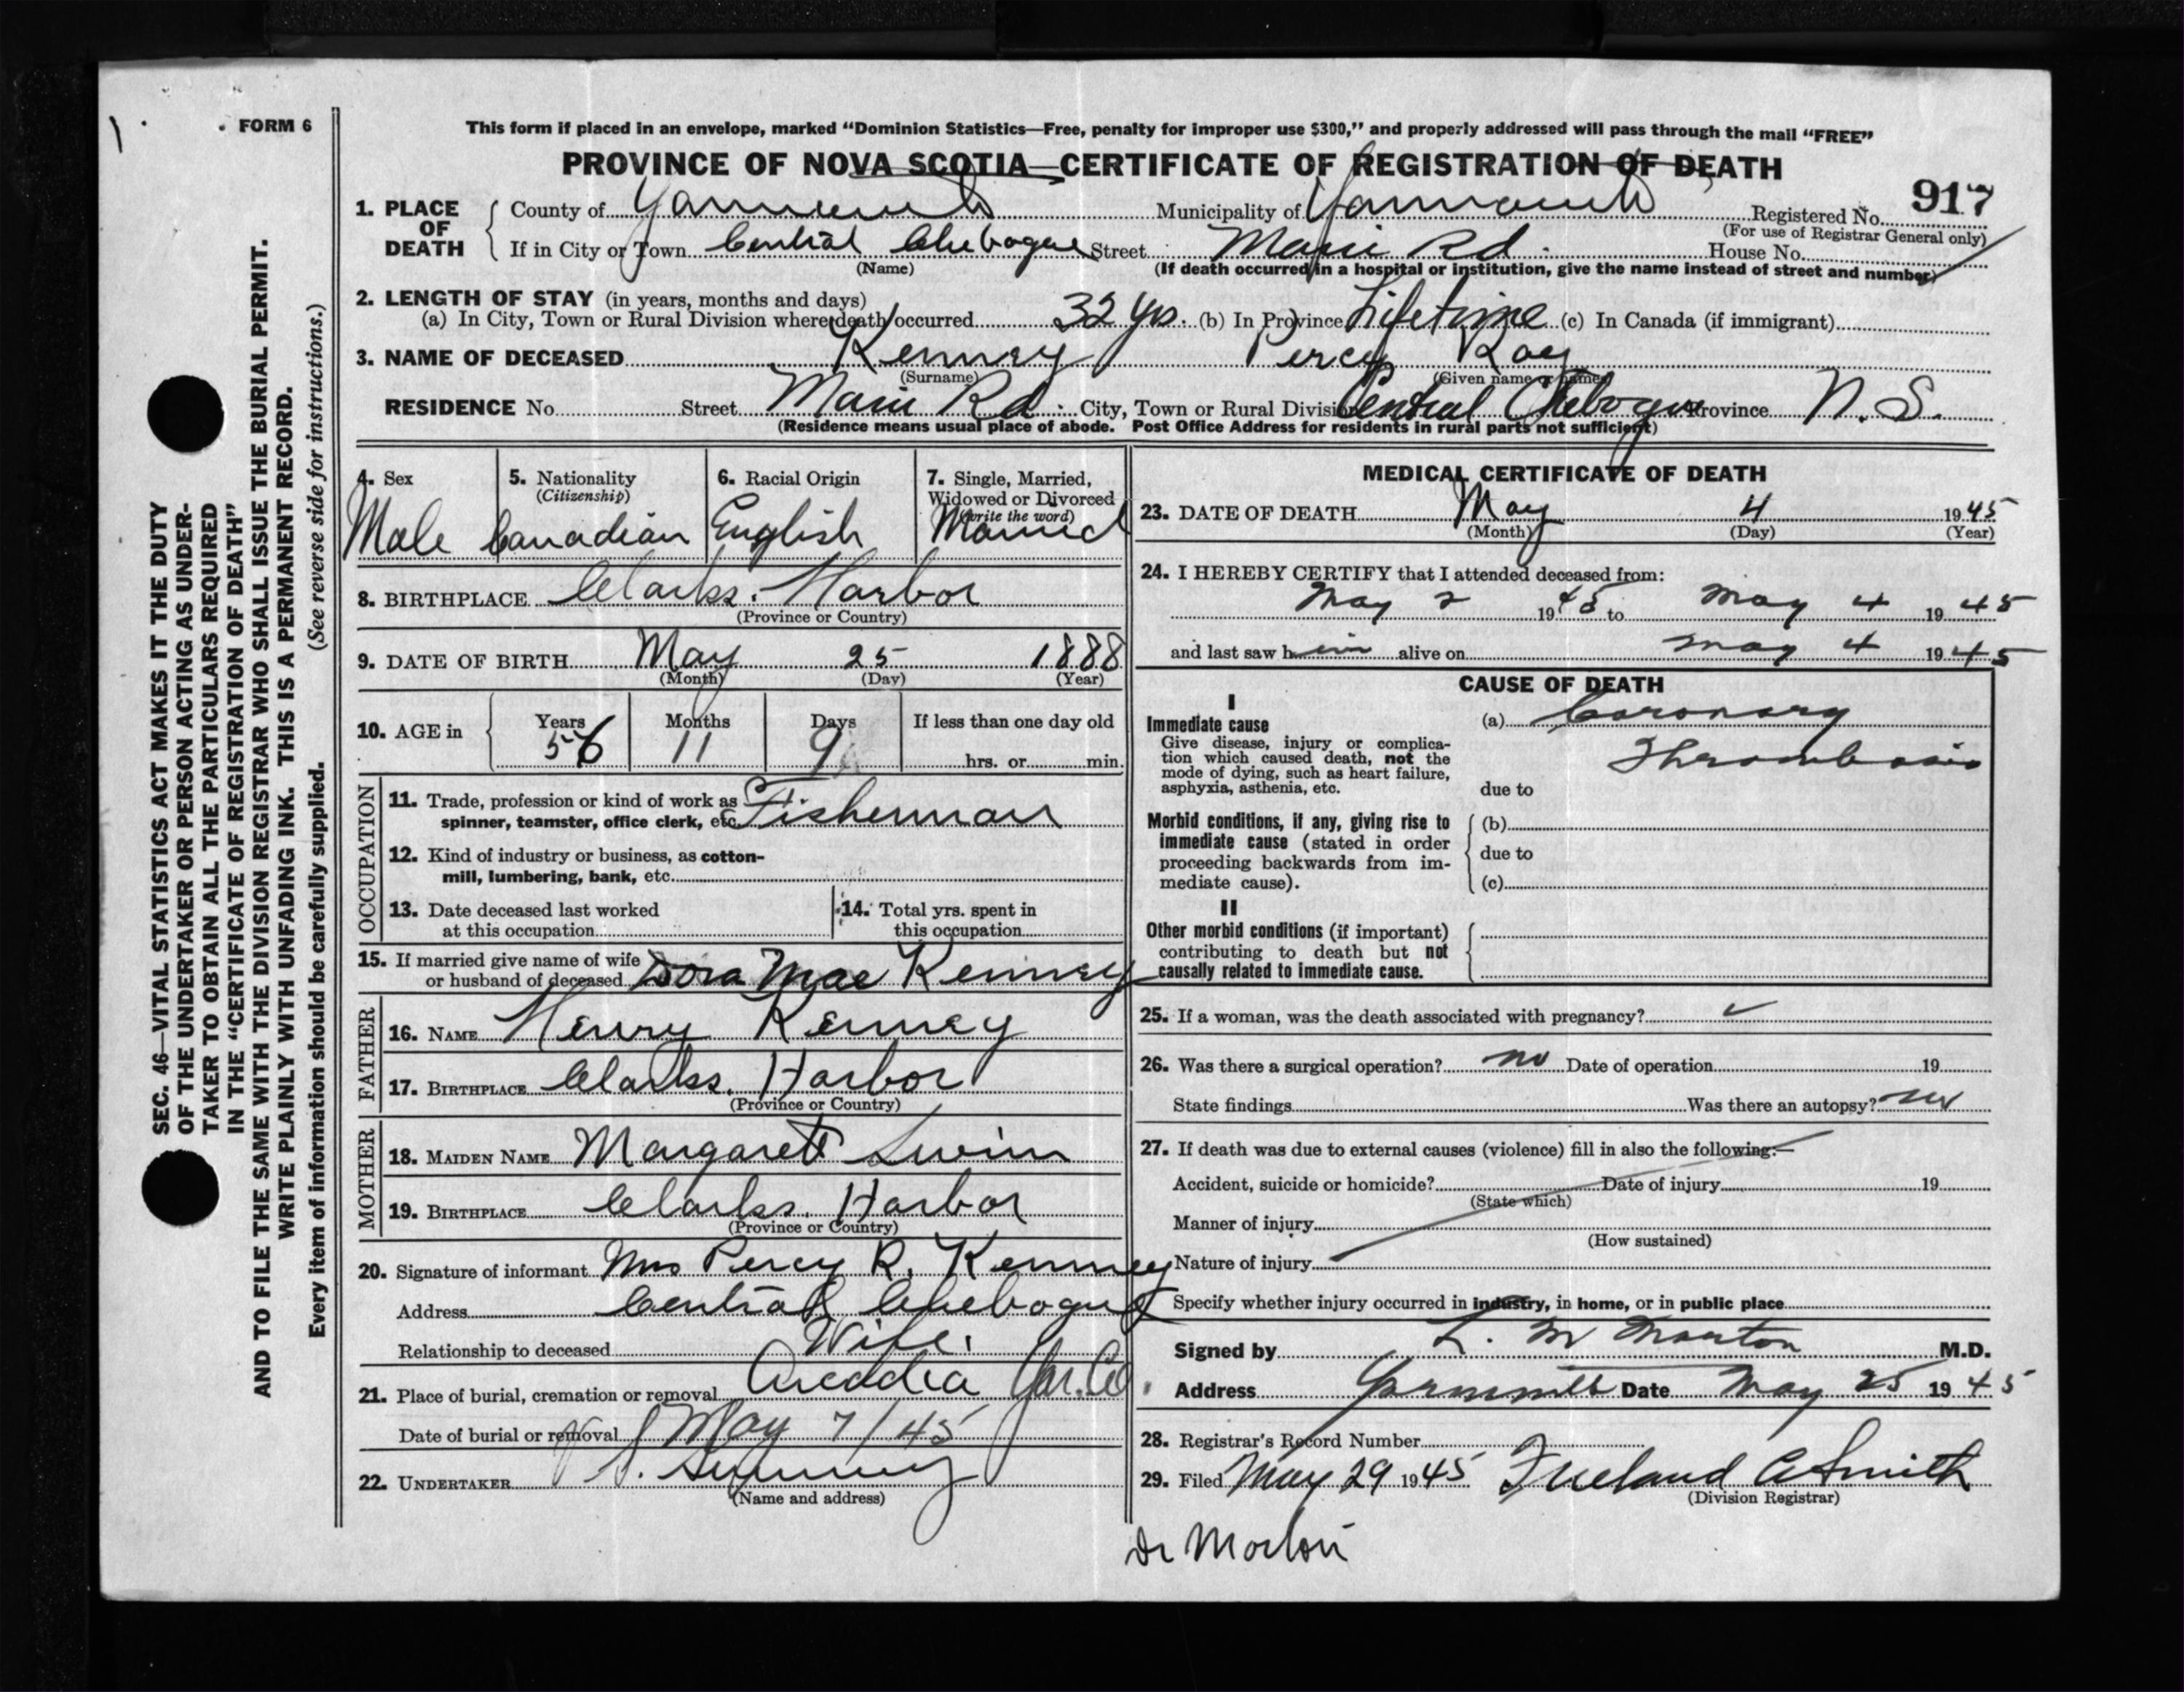 FORM 6
This form if placed in an envelope, marked “Dominion Statistics—Free, penalty for improper use $300,” and properly addressed will pass through the mail “FREE”
PROVINCE OF NOVA SCOTIA—CERTIFICATE OF REGISTRATION OF DEATH
917
1. PLACE OF DEATH County of Yarmouth Municipality of Yarmouth Registered No.
(For use of Registrar General only)
If in City or Town Central Chebogue Street Main Rd. House No.
(Name) (If death occurred in a hospital or institution, give the name instead of street and number)
2. LENGTH OF STAY (in years, months and days)
(a) In City, Town or Rural Division where death occurred 32 Yrs. (b) In Province Lifetime (c) In Canada (if immigrant)
3. NAME OF DECEASED Kenney Percy Roy
(Surname) (Given name or names)
RESIDENCE No. Street Main Rd. City, Town or Rural Division Central Chebogue Province N. S.
(Residence means usual place of abode. Post Office Address for residents in rural parts not sufficient)
4. Sex
Male
5. Nationality
(Citizenship)
Canadian
6. Racial Origin
English
7. Single, Married,
Widowed or Divorced
(write the word)
Married
8. BIRTHPLACE Clarks. Harbor
(Province or Country)
9. DATE OF BIRTH May 25 1888
(Month) (Day) (Year)
10. AGE in Years Months Days If less than one day old
56 11 9 hrs. or min.
OCCUPATION
11. Trade, profession or kind of work as
spinner, teamster, office clerk, etc. Fisherman
12. Kind of industry or business, as cotton-
mill, lumbering, bank, etc.
13. Date deceased last worked
at this occupation
14. Total yrs. spent in
this occupation
15. If married give name of wife
or husband of deceased Dora Mae Kenney
FATHER
16. NAME Henry Kenney
17. BIRTHPLACE Clarks. Harbor
(Province or Country)
MOTHER
18. MAIDEN NAME Margaret Swim
19. BIRTHPLACE Clarks. Harbor
(Province or Country)
20. Signature of informant Mrs Percy R. Kenney
Address Central Chebogue
Relationship to deceased Wife.
21. Place of burial, cremation or removal Arcadia Yar. Co.
Date of burial or removal May 7/45
22. UNDERTAKER
(Name and address)
MEDICAL CERTIFICATE OF DEATH
23. DATE OF DEATH May 4 1945
(Month) (Day) (Year)
24. I HEREBY CERTIFY that I attended deceased from:
May 2 1945 to May 4 1945
and last saw him alive on May 4 1945
CAUSE OF DEATH
I
Immediate cause (a) Coronary
Thrombosis
Give disease, injury or complica-
tion which caused death, not the
mode of dying, such as heart failure,
asphyxia, asthenia, etc. due to
Morbid conditions, if any, giving rise to (b)
immediate cause (stated in order due to
proceeding backwards from im-
mediate cause). (c)
II
Other morbid conditions (if important)
contributing to death but not
causally related to immediate cause.
25. If a woman, was the death associated with pregnancy?
26. Was there a surgical operation? no Date of operation 19
State findings Was there an autopsy? no
27. If death was due to external causes (violence) fill in also the following:—
Accident, suicide or homicide? Date of injury 19
(State which)
Manner of injury
(How sustained)
Nature of injury
Specify whether injury occurred in industry, in home, or in public place
Signed by L. M Morton M.D.
Address Yarmouth Date May 25 1945
28. Registrar's Record Number
29. Filed May 29 1945 Freeland A Smith
(Division Registrar)
Dr Morton
SEC. 46—VITAL STATISTICS ACT MAKES IT THE DUTY
OF THE UNDERTAKER OR PERSON ACTING AS UNDER-
TAKER TO OBTAIN ALL THE PARTICULARS REQUIRED
IN THE “CERTIFICATE OF REGISTRATION OF DEATH”
AND TO FILE THE SAME WITH THE DIVISION REGISTRAR WHO SHALL ISSUE THE BURIAL PERMIT.
WRITE PLAINLY WITH UNFADING INK. THIS IS A PERMANENT RECORD.
Every item of information should be carefully supplied. (See reverse side for instructions.)